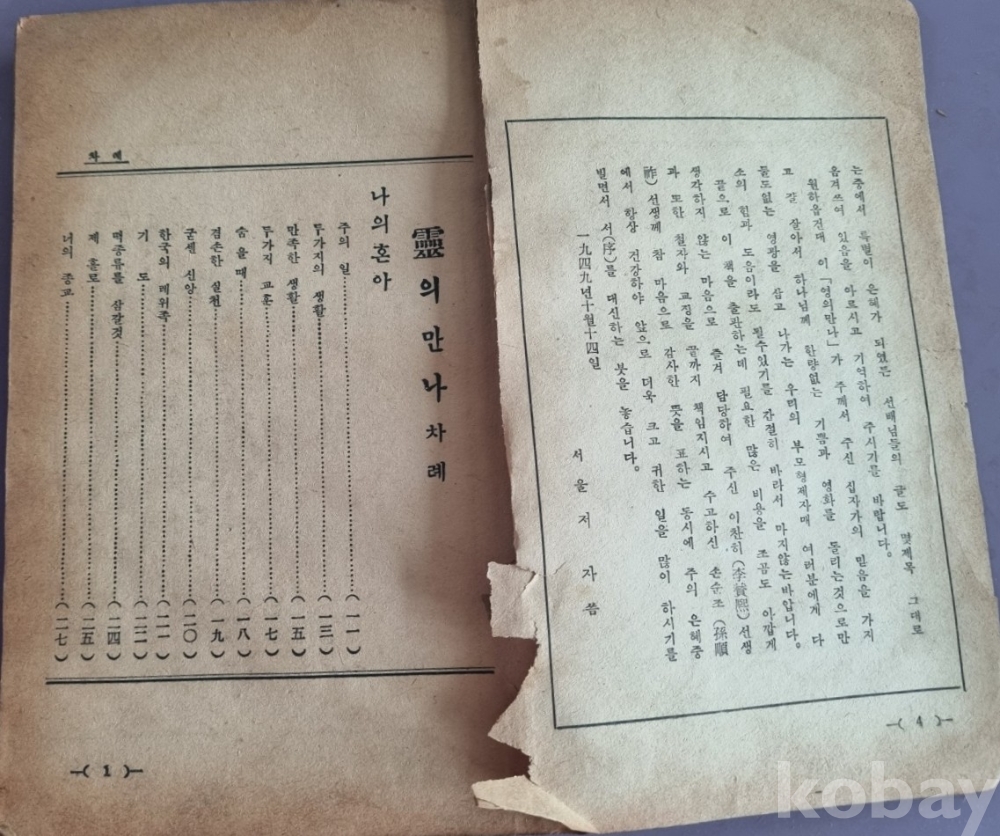 는중에서 특별이 은혜가 되였뜬 선배님들의 글도 몇제목 그대로
옴겨쓰여 있음을 아르시고 기억하여 주시기를 바랍니다。
원하옵건대 이「영의만나」가 주께서 주신 십자가의 믿음을 가지
고 잘 살아서 하나님께 한량없는 기쁨과 영화를 돌리는것으로만
들도없는 영광을 삼고 나가는 우리의 부모형제자매 여러분에게 다
소의 힘과 도음이라도 될수있기를 간절히 바라서 마지않는바입니다。
끝으로 이 책을 출판하는데 필요한 많은 비용을 조곰도 아깝게
생각하지 않는 마음으로 즐겨 담당하여 주신 이찬히(李賛熙)선생
과 또한 철자와 교정을 끝까지 책임지시고 수고하신 손순조(孫順
祚)선생께 참 마음으로 감사한 뜻을 표하는 동시에 주의 은혜중
에서 항상 건강하야 앞으로 더욱 크고 귀한 일을 많이 하시기를
빌면서 서(序)를 대신하는 붓을 놓습니다。
一九四九년十월十四일
서울저자씀
—( 4 )—
차 례
靈의만나차례
나의혼아
주의 일…………(一一)
두가지의 생활…………(一三)
만족한 생활…………(一五)
두가지 교훈…………(一七)
숨을때…………(一八)
겸손한 실천…………(一九)
굳센 신앙…………(二〇)
한국의 레위족…………(二一)
기도…………(二二)
떡종류를 삼갈것…………(二四)
제 홀로…………(二五)
너의 종교…………(二七)
—( 1 )—
kobay